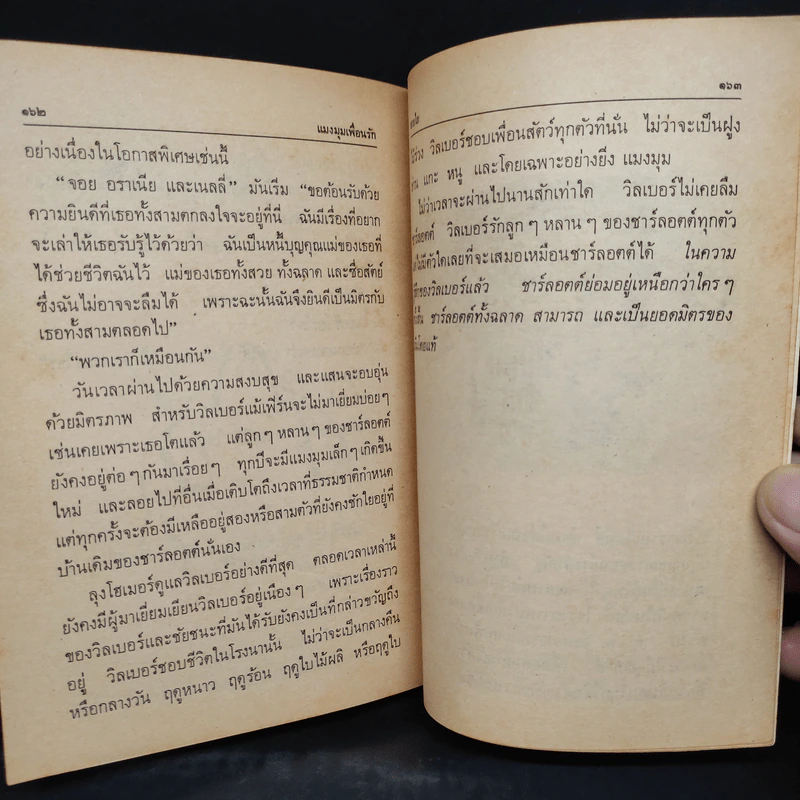 ๑๖๒
แมงมุมเพื่อนรัก
อย่างเนื่องในโอกาสพิเศษเช่นนี้
“จอย อราเนีย และเนลลี่” มันเริ่ม “ขอต้อนรับด้วย
ความยินดีที่เธอทั้งสามตกลงใจจะอยู่ที่นี่ ฉันมีเรื่องที่อยาก
จะเล่าให้เธอรับรู้ไว้ด้วยว่า ฉันเป็นหนี้บุญคุณแม่ของเธอที่
ได้ช่วยชีวิตฉันไว้ แม่ของเธอทั้งสวย ทั้งฉลาด และซื่อสัตย์
ซึ่งฉันไม่อาจจะลืมได้ เพราะฉะนั้นฉันจึงยินดีเป็นมิตรกับ
เธอทั้งสามตลอดไป”
“พวกเราก็เหมือนกัน”
วันเวลาผ่านไปด้วยความสงบสุข และแสนจะอบอุ่น
ด้วยมิตรภาพ สำหรับวิลเบอร์แม้เฟิร์นจะไม่มาเยี่ยมบ่อยๆ
เช่นเคยเพราะเธอโตแล้ว แต่ลูกๆ หลานๆ ของชาร์ลอตต์
ยังคงอยู่ต่อๆ กันมาเรื่อยๆ ทุกปีจะมีแมงมุมเล็กๆ เกิดขึ้น
ใหม่ และลอยไปที่อื่นเมื่อเติบโตถึงเวลาที่ธรรมชาติกำหนด
แต่ทุกครั้งจะต้องมีเหลืออยู่สองหรือสามตัวที่ยังคงชักใยอยู่ที่
บ้านเดิมของชาร์ลอตต์นั่นเอง
ลุงโฮเมอร์ดูแลวิลเบอร์อย่างดีที่สุด ตลอดเวลาเหล่านี้
ยังคงมีผู้มาเยี่ยมเยียนวิลเบอร์อยู่เนืองๆ เพราะเรื่องราว
ของวิลเบอร์และชัยชนะที่มันได้รับยังคงเป็นที่กล่าวขวัญถึง
อยู่ วิลเบอร์ชอบชีวิตในโรงนานั้น ไม่ว่าจะเป็นกลางคืน
หรือกลางวัน ฤดูหนาว ฤดูร้อน ฤดูใบไม้ผลิ หรือฤดูใบ
๑๖๓
วิลเบอร์ชอบเพื่อนสัตว์ทุกตัวที่นั่น ไม่ว่าจะเป็นฝูง
แกะ หนู และโดยเฉพาะอย่างยิ่ง แมงมุม
ไม่ว่าเวลาจะผ่านไปนานสักเท่าใด วิลเบอร์ไม่เคยลืม
วิลเบอร์รักลูกๆ หลานๆ ของชาร์ลอตต์ทุกตัว
ไม่มีตัวใดเลยที่จะเสมอเหมือนชาร์ลอตต์ได้ ในความ
ของวิลเบอร์แล้ว ชาร์ลอตต์ย่อมอยู่เหนือกว่าใครๆ
ชาร์ลอตต์ทั้งฉลาด สามารถ และเป็นยอดมิตรของ
โดยแท้